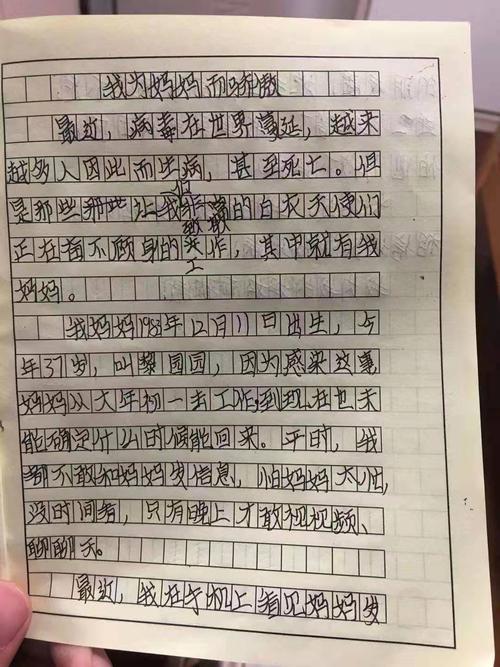 我为妈妈而骄傲
最近，病毒在世界蔓延，越来
越多人因此而生病，甚至死亡。但
是那些那些让我们敬的白衣天使们
正在奋不顾身的工作，其中就有我
妈妈。
我妈妈1983年12月11日出生，今
年37岁，叫黎园园，因为感染这事
妈妈从大年初一去工作，到现在也未
能确定什么时候能回来。平时，我
都不敢和妈妈发信息，怕妈妈太忙，
没时间看，只有晚上才敢视视频、
聊聊天。
最近，我在手机上看见妈妈发